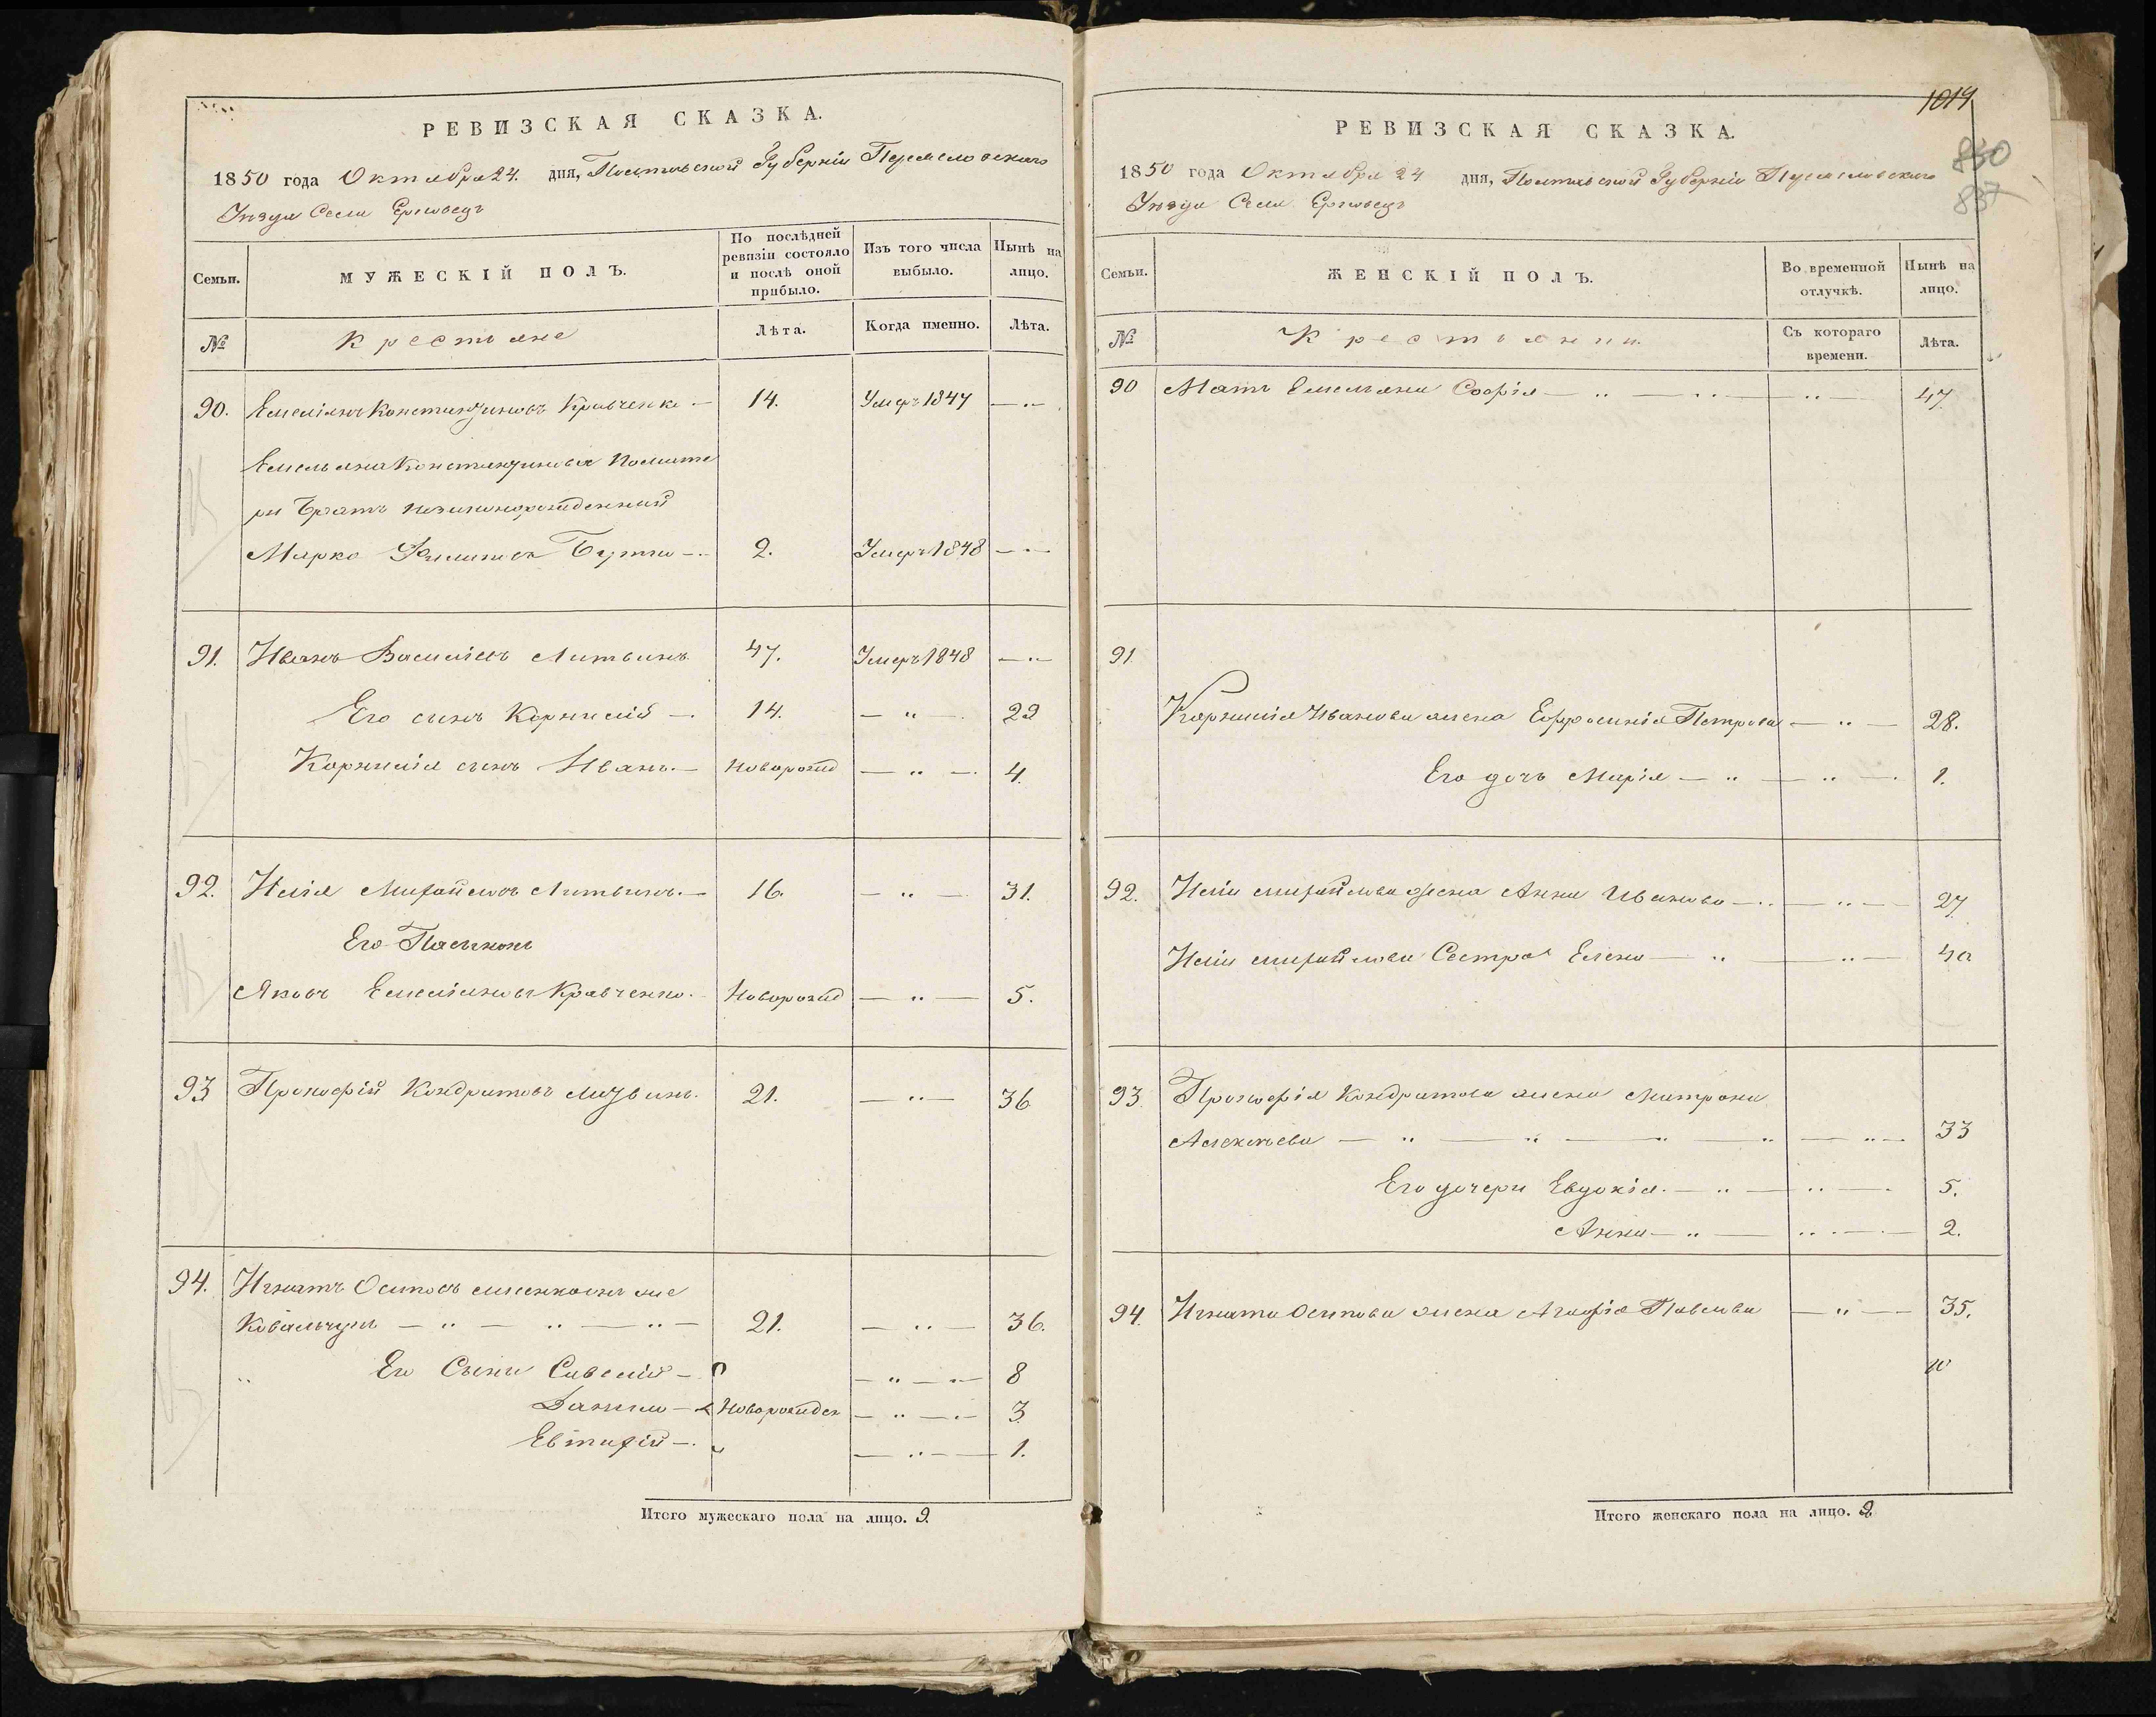 РЕВИЗСКАЯ СКАЗКА.
1850 года Октября 24. дня, Полтавской Губерніи Переяславскаго
Уѣзда Села Ерковецъ
Семьи.
МУЖЕСКІЙ ПОЛЪ.
По послѣдней ревизіи состояло и послѣ оной прибыло.
Изъ того числа выбыло.
Нынѣ на лицо.
№
Крестьяне
Лѣта.
Когда именно.
Лѣта.
90. Емеліянъ Константиновъ Кравченко — 14. Умеръ 1847 — „ —
Емельяна Константинова По мате
ри Братъ незаконорожденный
Марко Бутко — 2. Умеръ 1848 — „ —
91. Иванъ Василіевъ Литвинъ 47. Умеръ 1848 — „ —
Его сынъ Корнилій — 14. — „ — 29
Корнилія сынъ Иванъ — Новорожд — „ — 4.
92. Илія Михайловъ Литвинъ. — 16. — „ — 31.
Его Пасынокъ
Яковъ Емеліяновъ Кравченко. Новорожд — „ — 5.
93 Прокофій Кондратовъ Литвинъ. 21. — „ — 36
94. Игнатъ Осиповъ онъ же
Ковальчукъ — „ — „ — „ — 21. — „ — 36.
Его Сыны Савелій — — „ — 8
Данило — Новорожден — „ — 3
Евтихій — — „ — 1.
Итого мужескаго пола на лицо. 9.
1019
850
837
РЕВИЗСКАЯ СКАЗКА.
1850 года Октября 24 дня, Полтавской Губерніи Переяславскаго
Уѣзда Села Ерковецъ
Семьи.
ЖЕНСКІЙ ПОЛЪ.
Во временной отлучкѣ.
Нынѣ на лицо.
№
Крестьянки.
Съ котораго времени.
Лѣта.
90 Мать Емельяна Софія — „ — „ — „ — 47
91
Корнилія Иванова жена Ефросинія Петрова — „ — 28.
Его дочь Марія — „ — „ — 1.
92. Иліи Михайлова жена Анна Иванова — „ — „ — 27
Иліи Михайлова Сестра Елена — „ — „ — 40
93. Прокофія Кондратова жена Матрона
Алексѣева — „ — „ — „ — „ — „ — 33
Его дочери Евдокія. — „ — „ — 5.
Анна — „ — „ — 2.
94. Игната Осипова жена Агафія Павлова — „ — 35.
Итого женскаго пола на лицо. 9